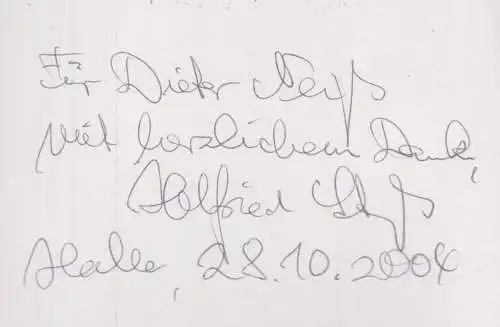 Für Dieter
Mit herzlichem Dank,
Helfried
Halle, 28.10.2004